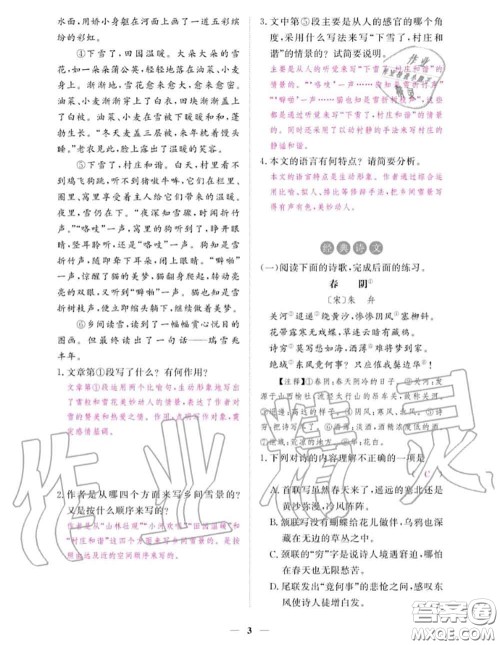 水面,用娇小身躯在河面上画了一道五彩缤
纷的彩虹。
④下雪了,田园温暖。大朵大朵的雪
花,如一朵朵蒲公英,轻轻地落在油菜、小麦
身上。渐渐地,雪花愈来愈大、愈来愈密,油
菜、小麦渐渐盖上了棉被,田块渐渐盖上了
棉被。油菜、小麦在雪被下暖暖和和,蓬
勃生长。“冬天麦盖三层被,来年枕着馒头
睡。”老农见此,脸上露出了温暖的笑容。
⑤下雪了,村庄和谐。白天,听不到
鸡飞狗跳,听不到猪嗷牛哞,它们在栏里、圈
里、窝里享受着主人给它们带来的温暖。夜
里,村庄一片安静。“夜深知雪重,时闻折竹
声。”“咯吱”一声,窝里的狗听到了,睁开眼
睛,叫了几声。“咯吱”一声,还是雪折竹
声。“咯吱”一声,还是雪折竹声。狗知是雪
折竹声,随即卧下闭上眼。“噼啪”
一声,惊醒了猫的美梦。猫翻身爬起,转动着亮亮的
眼睛。又是“噼啪”一声,猫也知是雪
折树枝声,便也卧下,继续甜甜地做美梦。
⑥乡间读雪,读到了一幅幅赏心悦目的
图画。但最终读出了一句话——瑞雪兆
丰年。
1.文章第①段写了什么?有何作用?
文章第①段运用两个比喻句,生动形象地写出
了雪粒和雪花美妙动人的情景,表达了作者对
雪的赞美和热爱之情。作用:引出写作对象,奠
定感情基调。
2.作者是从哪四个方面来写乡间雪景的?
又是按什么顺序来写的?
作者是从“山林壮观”“小河灵动”“田园温暖”和
“村庄和谐”这四个方面写乡间雪景的。是按
由远及近的空间顺序来写的。
3.文中第⑤段主要是从人的感官的哪个角
度,采用什么写法来写“下雪了,村庄和
谐”的情景的?试简要说明。
主要是从人的听觉来写“下雪了,村庄和谐”的
情景的。“‘咯吱’一声……狗知是雪折竹声”
“‘噼啪’一声……猫也知是雪折树枝声”,这些
都是通过人的听觉来写“下雪了,村庄和谐”的
情景的。同时还采用了以动衬静的手法来写村庄的
静谧和谐。
4.本文的语言有何特点?请简要分析。
本文的语言特点是生动形象。作者通过综合运
用比喻、拟人、排比等修辞手法,把乡间雪景写
得有声有色,美妙动人。
经典诗文
(一)阅读下面的诗歌,完成后面的练习。
春 阴①
〔宋〕朱 弁
关河②迢递绕黄沙,惨惨阴风塞柳斜。
花带露寒无戏蝶,草连云暗有藏鸦。
诗穷③莫写愁如海,酒薄④难将梦到家。
绝域⑤东风竟何事?只应催我鬓边华⑥!
1.下列对诗的内容理解不正确的一项是
( C )
A.首联写虽然春天来了,遥远的塞北还是
黄沙弥漫,冷风阵阵。
B.颔联写没有蝴蝶给花儿做伴,乌鸦也深
藏在无边的草丛之中。
C.颈联的“穷”字是说诗人境遇窘迫,哪怕
在春天也无限愁苦。
D.尾联发出“竟何事”的悲怆之问,感叹东
风使诗人徒增白发。
3
作业精灵
答案圈
MXQE.COM